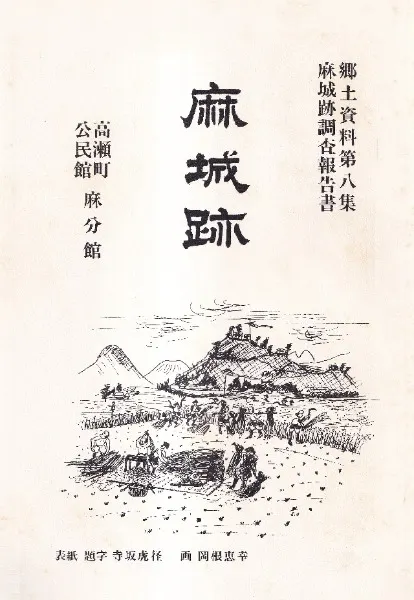 郷土資料第八集
麻城跡調査報告書
麻城跡
高瀬町
公民館
麻分館
表紙 題字 寺坂虎径 画 岡根恵幸